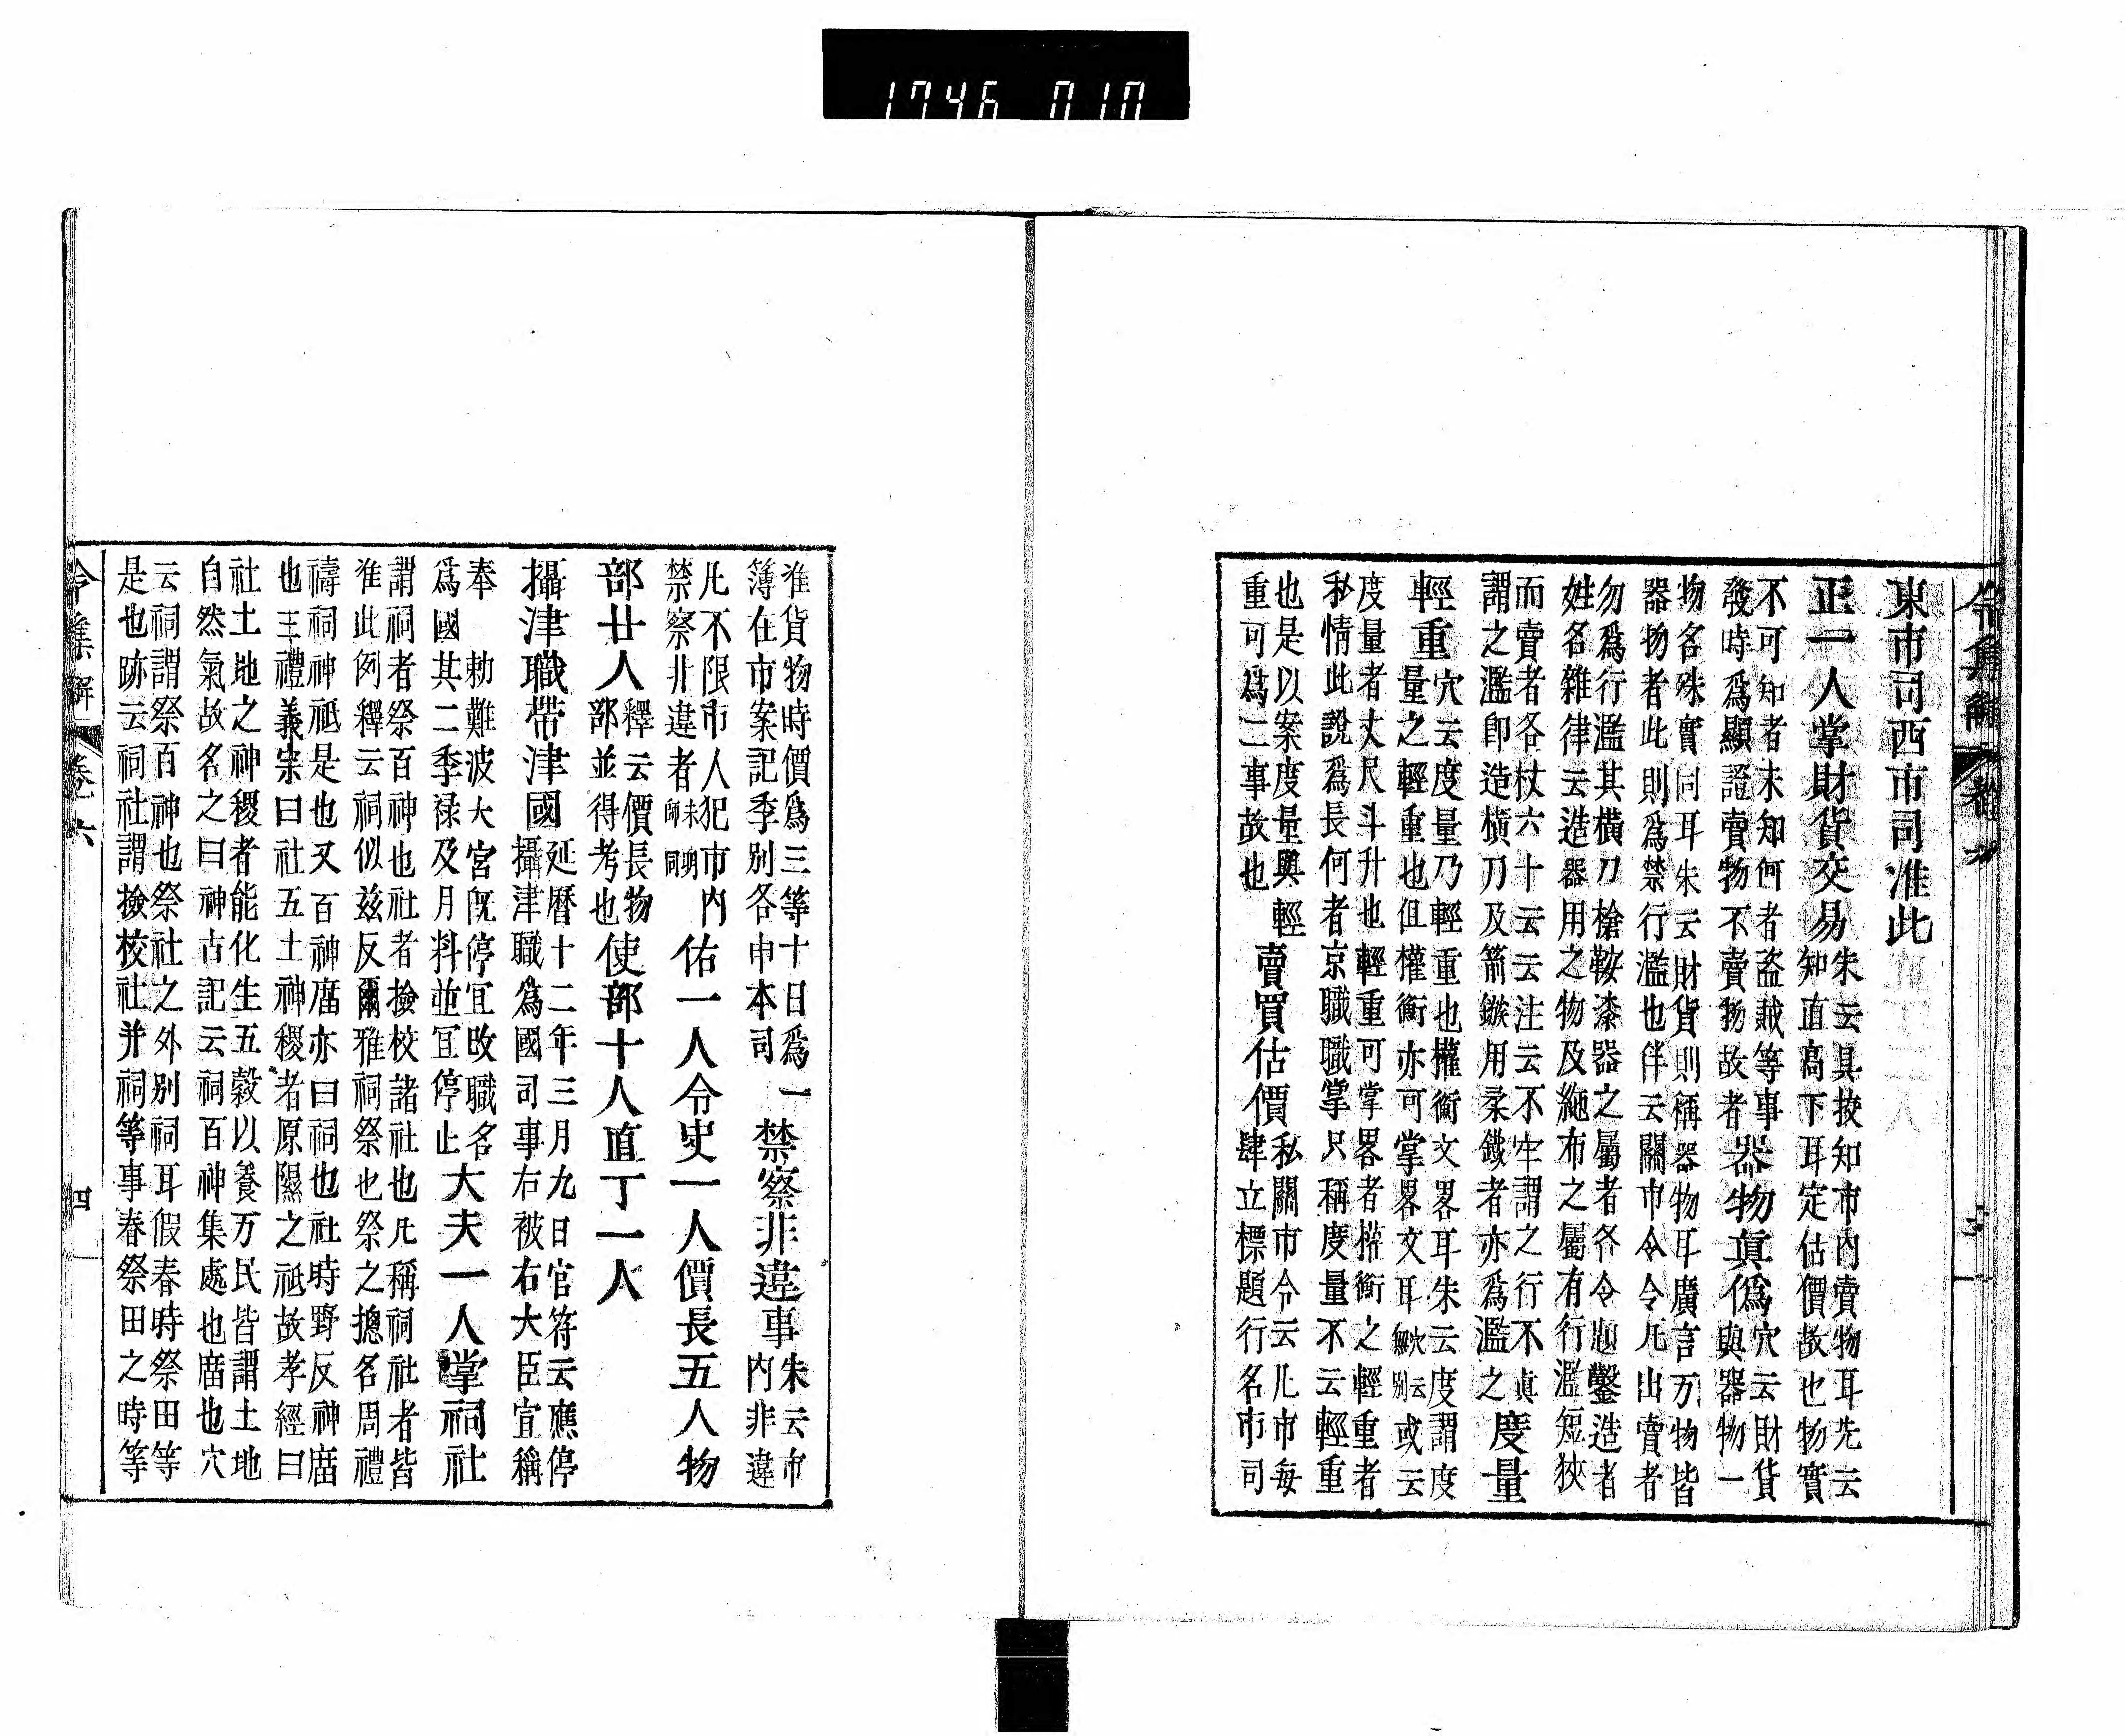 1746 010
令集解 卷六
東市司西市司准此
正一人掌財貨交易
朱云具挍知市内賣物耳先云
知直高下耳定估價故也物實
不可知者未知何者盗賊等事
發時爲顯證賣物不賣物故者
器物眞僞
穴云財貨
與器物一
物名殊實同耳朱云財貨則稱器物耳廣言万物皆
器物者此則爲禁行濫也伴云關市令令凡出賣者
勿爲行濫其横刀槍鞍漆器之屬者各令題鑿造者
姓名雜律云造器用之物及絁布之屬有行濫短狹
而賣者各杖六十云云注云不牢謂之行不眞
謂之濫即造横刀及箭鏃用柔鐵者亦爲濫之
度量
輕重
穴云度量乃輕重也權衡文畧耳朱云度謂度
量之輕重也但權衡亦可掌畧文耳穴云無別或云
度量者丈尺斗升也輕重可掌畧者權衡之輕重者
私情此說爲長何者京職職掌只稱度量不云輕重
也是以案度量與輕
重可爲二事故也
賣買估價
私關市令云凡市每
肆立標題行名市司
准貨物時價爲三等十日爲一
簿在市案記季別各申本司
禁察非違事
朱云市
内非違
凡不限市人犯市内
禁察非違者朱明師同
佑一人令史一人價長五人物
部廿人
釋云價長物
部並得考也
使部十人直丁一人
攝津職帶津國
延曆十二年三月九日官符云應停
攝津職爲國司事右被右大臣宣稱
奉 勅難波大宮旣停宜改職名
爲國其二季禄及月料並宜停止
大夫一人掌祠社
謂祠者祭百神也社者撿校諸社也凡稱祠社者皆
准此例釋云祠似玆反爾雅祠祭也祭之摠名周禮
禱祠神祇是也又百神廟亦曰祠也社時野反神廟
也三禮義宗曰社五土神稷者原隰之祇故孝經曰
社土地之神稷者能化生五穀以養万民皆謂土地
自然氣故名之曰神古記云祠百神集處也廟也穴
云祠謂祭百神也祭社之外別祠耳假春時祭田等
是也跡云祠社謂撿校社并祠等事春祭田之時等
令集解 卷六 四